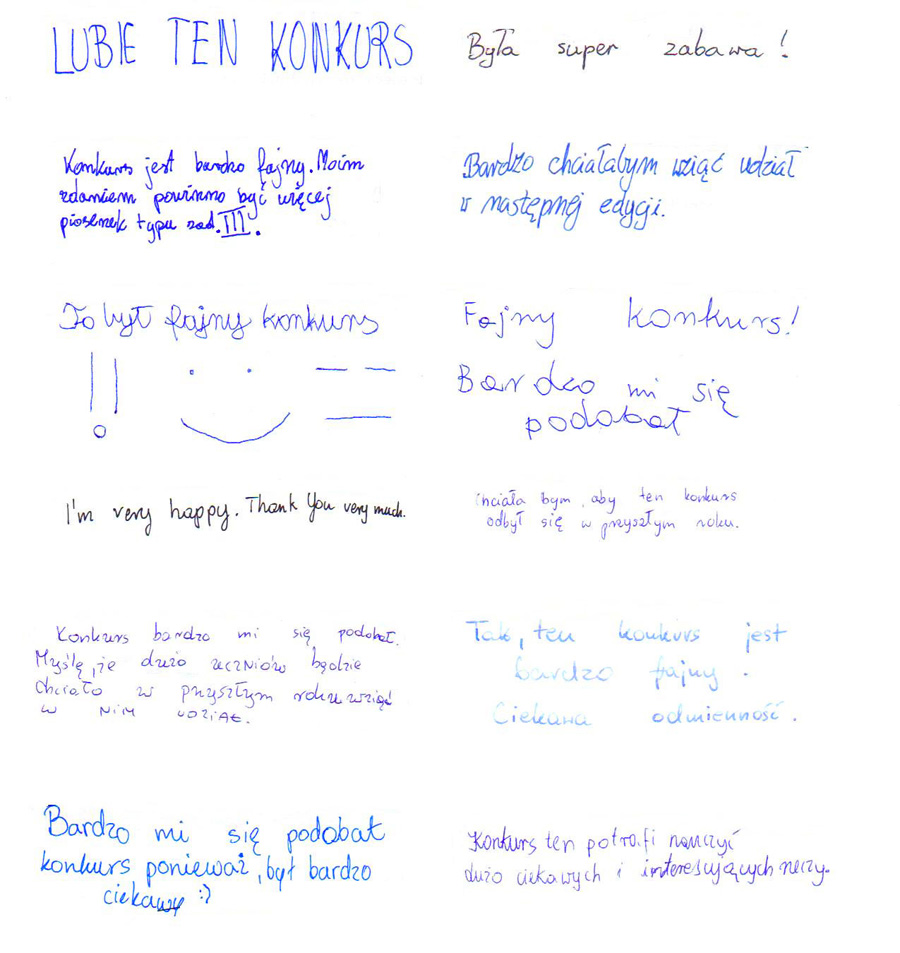 LUBIE TEN KONKURS
Była super zabawa!
Konkurs jest bardzo fajny. Moim
zdaniem powinno być więcej
piosenek typu zad. III.
Bardzo chciałabym wziąć udział
w następnej edycji.
To był fajny konkurs
!!
Fajny konkurs!
Bardzo mi się
podobał
I'm very happy. Thank You very much.
Chciała bym, aby ten konkurs
odbył się w przyszłym roku.
Konkurs bardzo mi się podobał.
Myślę, że dużo uczniów będzie
chciało w przyszłym roku wziąć
w nim udział.
Tak, ten konkurs jest
bardzo fajny.
Ciekawa odmienność.
Bardzo mi się podobał
konkurs ponieważ, był bardzo
ciekawy :)
Konkurs ten potrafi nauczyć
dużo ciekawych i interesujących rzeczy.